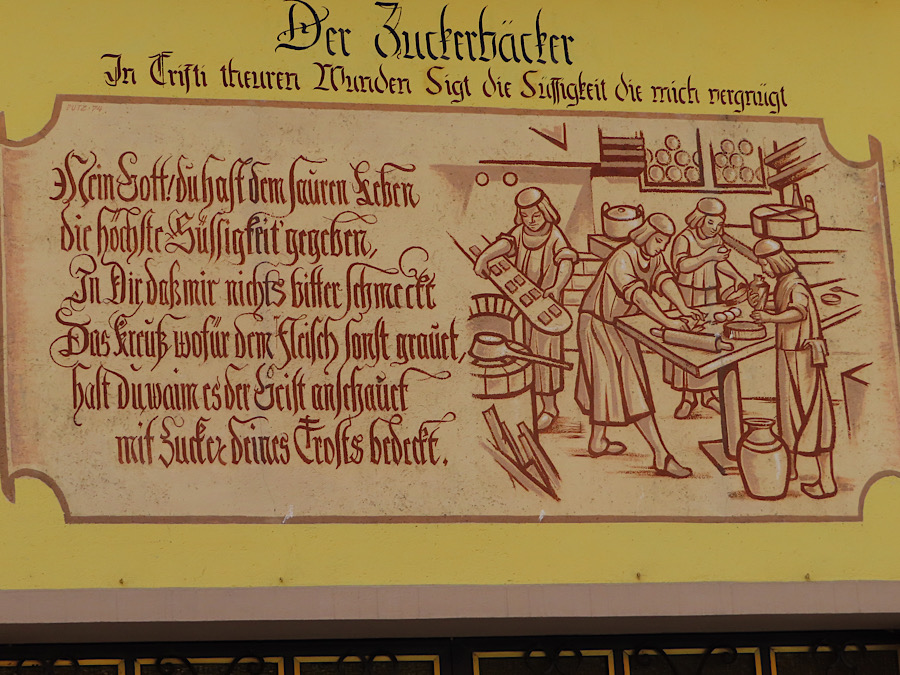 Der Zuckerbäcker
In Cristi theuren Wunden Sigt die Süssigkeit die mich vergnügt
Mein Gott! du hast dem sauren Leben
die höchste Süssigkeit gegeben,
In Dir daß mir nichts bitter schmeckt
Das Kreutz wofür dem Fleisch sonst grauet,
hast du, wann es der Geist anschauet
mit Zucker deines Trosts bedeckt.